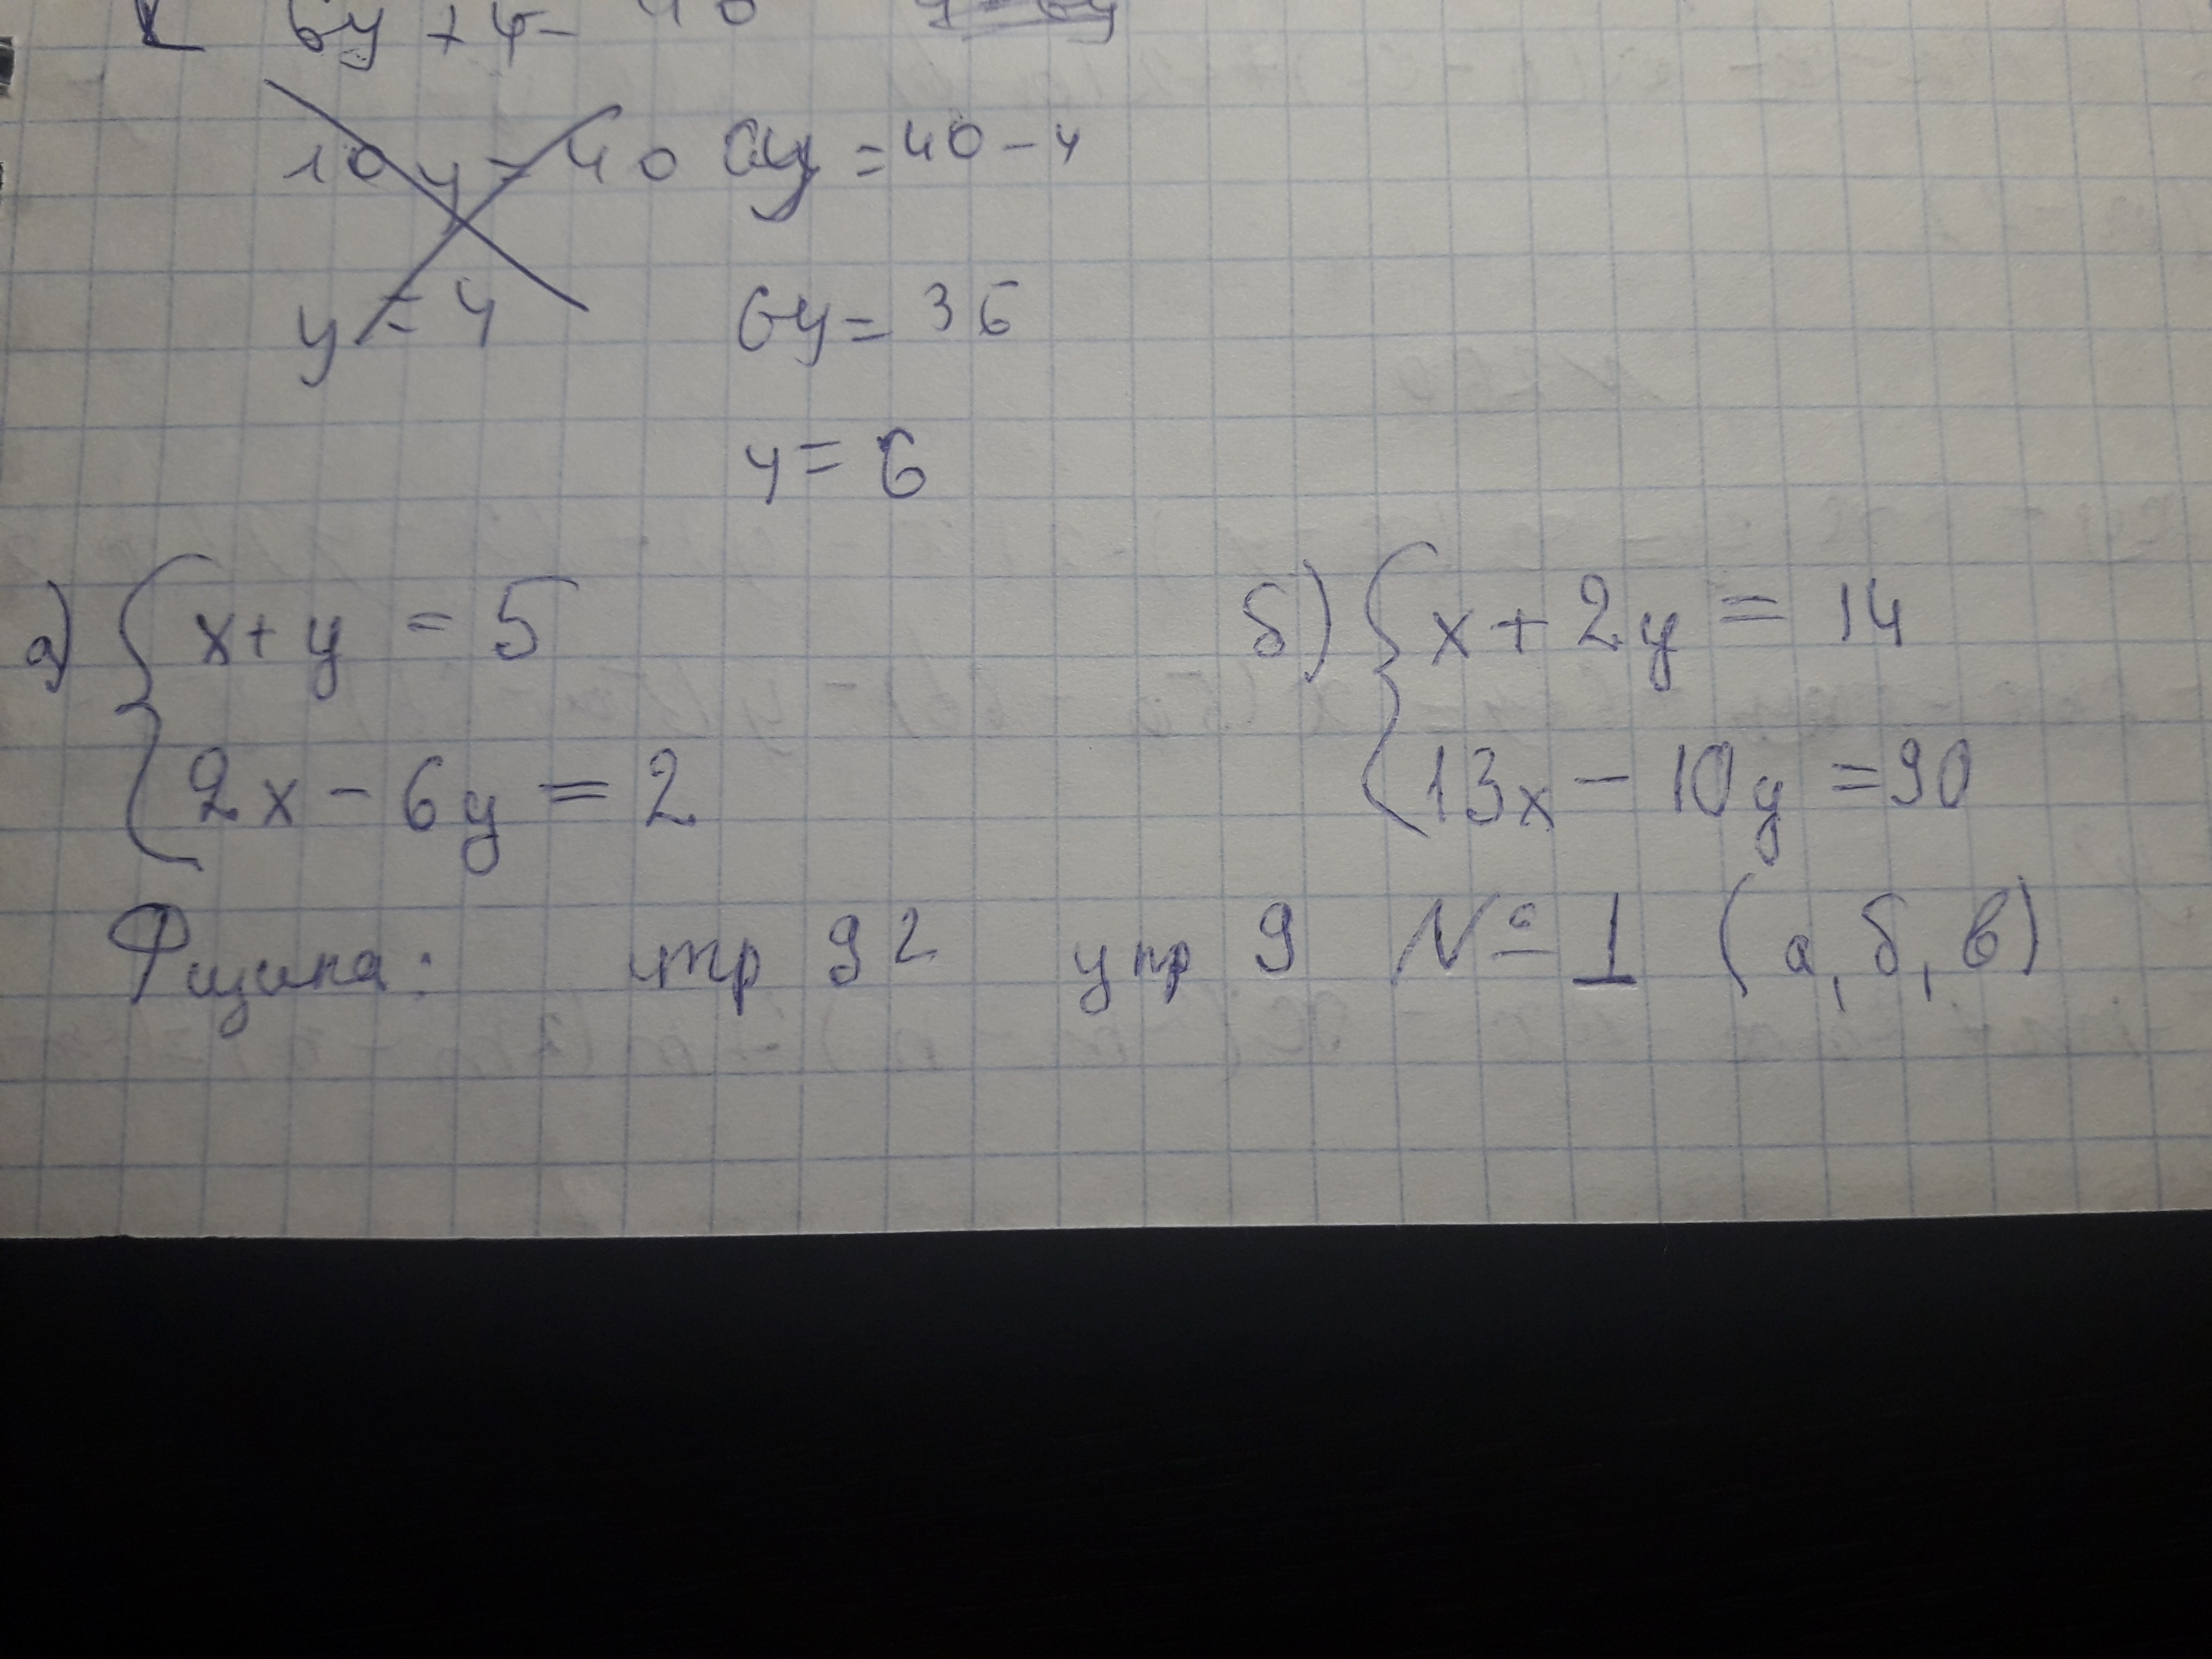 6y + 4 = 40
10y = 40 6y = 40 - 4
y = 4 6y = 36
y = 6
а) { x + y = 5 б) { x + 2y = 14
2x - 6y = 2 13x - 10y = 90
Физика: стр 92 упр 9 № 1 (а, б, в)